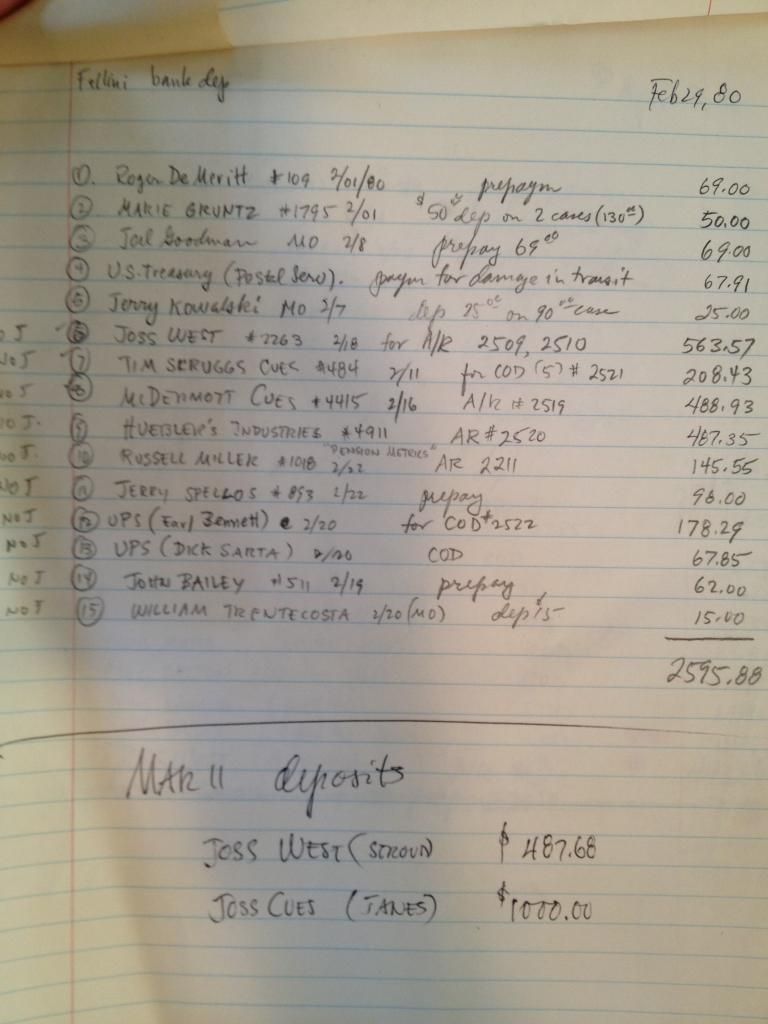 Fellini bank dep Feb 29, 80
①. Roger DeMeritt #109 2/01/80 prepaym 69.00
② MARIE GRUNTZ #1795 2/01 $50⁰⁰ dep on 2 cases (130⁰⁰) 50.00
③ Joel Goodman MO 2/8 prepay 69⁰⁰ 69.00
④ U.S. Treasury (Postal Serv). paym for damage in transit 67.91
⑤ Jerry Kowalski MO 2/7 dep 25⁰⁰ on 90⁰⁰ case 25.00
⑥ JOSS WEST #2263 2/18 for A/R 2509, 2510 563.57
NOJ ⑦ TIM SCRUGGS CUES #484 2/11 for COD (5) # 2521 208.43
NOJ ⑧ McDERMOTT CUES #4415 2/16 A/R # 2519 488.93
NOJ. ⑨ HUEBLER'S INDUSTRIES #4911 AR #2520 487.35
NOJ. ⑩ RUSSELL MILLER #1018 "PENSION METRICS" 2/22 AR 2211 145.55
NOJ ⑪ JERRY SPELLOS #893 2/22 prepay 98.00
NOJ ⑫ UPS (Earl Bennett) 2/20 for COD #2522 178.29
NOJ ⑬ UPS (DICK SARTA) 2/20 COD 67.85
NOJ ⑭ JOHN BAILEY #511 2/19 prepay 62.00
NOJ ⑮ WILLIAM TRENTECOSTA 2/20 (MO) dep $15 15.00
2595.88
MAR 11 deposits
JOSS WEST (STROUD) $487.68
JOSS CUES (JANES) $1000.00